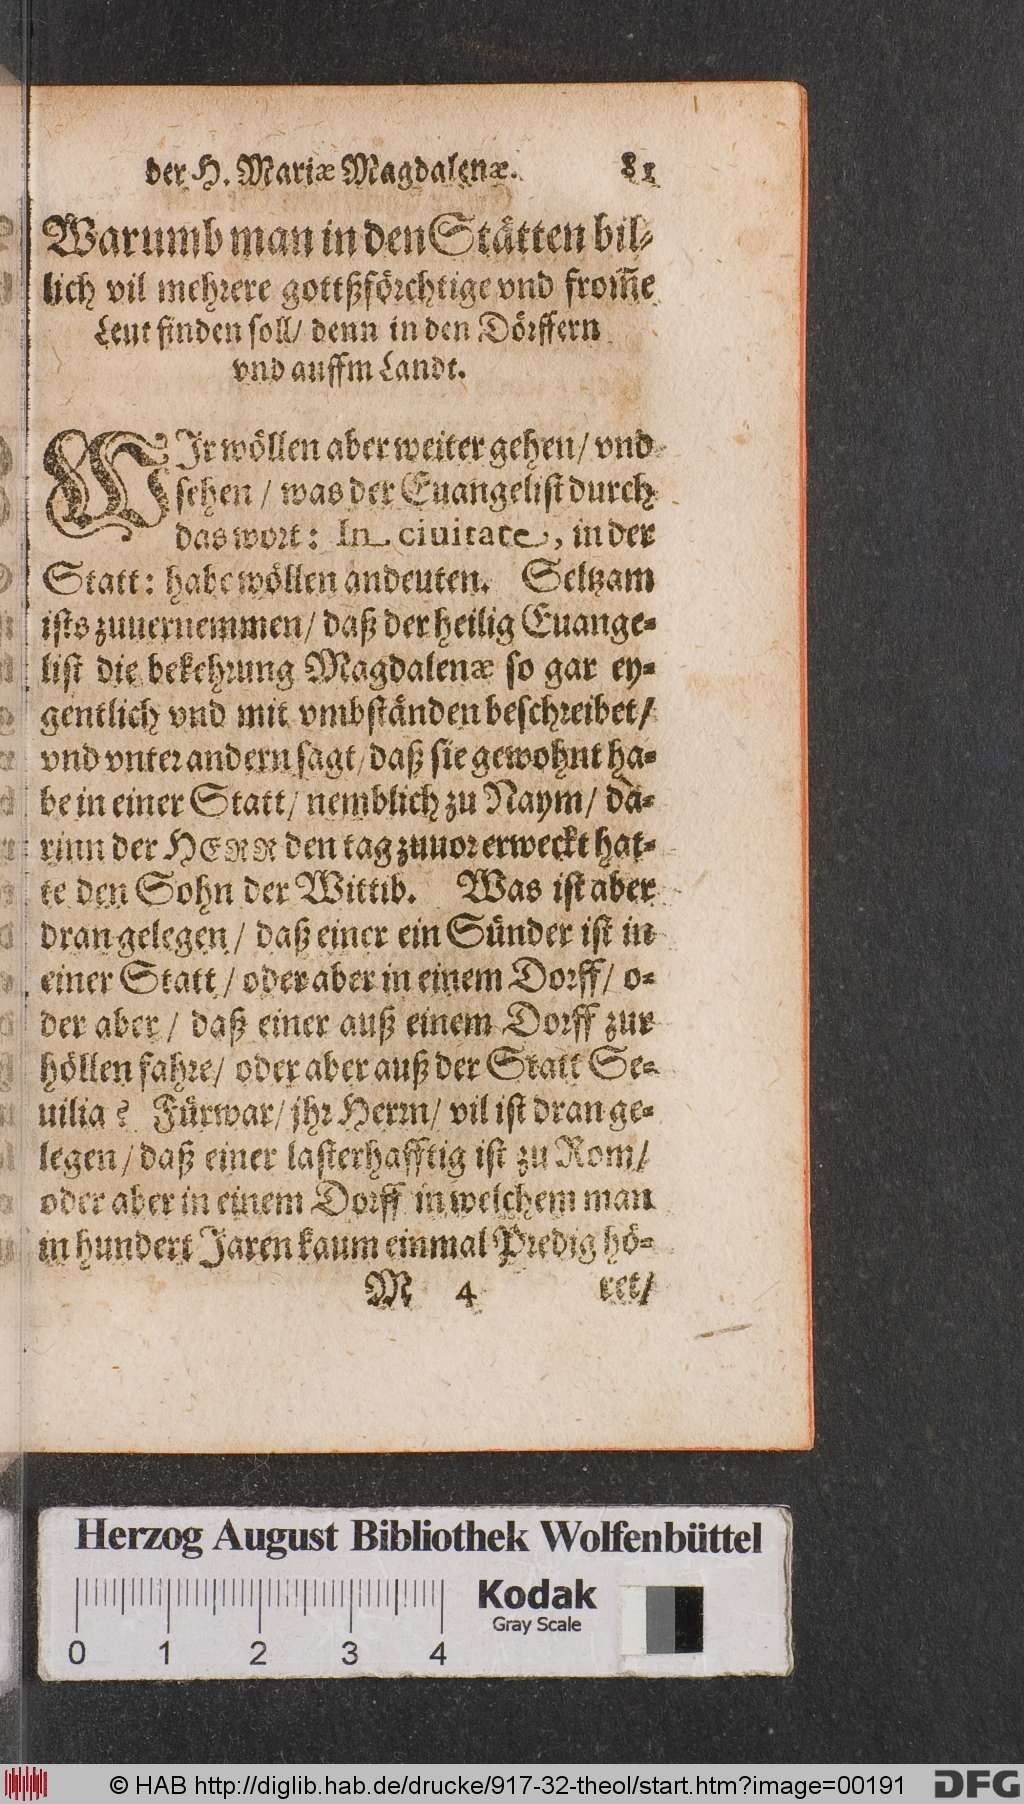 der H. Mariæ Magdalenæ. 81
Warumb man in den Stätten bil-
lich vil mehrere gottßförchtige vnd from̃e
Leut finden soll/ denn in den Dörffern
vnd auffm Landt.
WIr wöllen aber weiter gehen/ vnd
sehen / was der Euangelist durch
das wort: In ciuitate, in der
Statt: habe wöllen andeuten. Seltzam
ists zuuernemmen/ daß der heilig Euange-
list die bekehrung Magdalenæ so gar ey-
gentlich vnd mit vmbständen beschreibet/
vnd vnter andern sagt/ daß sie gewohnt ha-
be in einer Statt/ nemblich zu Naym/ da-
rinn der HERR den tag zuuor erweckt hat-
te den Sohn der Wittib. Was ist aber
dran gelegen/ daß einer ein Sünder ist in
einer Statt/ oder aber in einem Dorff/ o-
der aber/ daß einer auß einem Dorff zur
höllen fahre/ oder aber auß der Statt Se-
uilia? Fürwar/ jhr Herrn/ vil ist dran ge-
legen/ daß einer lasterhafftig ist zu Rom/
oder aber in einem Dorff in welchem man
in hundert Jaren kaum einmal Predig hö-
M 4 ret/
Herzog August Bibliothek Wolfenbüttel
Kodak
Gray Scale
0 1 2 3 4
© HAB http://diglib.hab.de/drucke/917-32-theol/start.htm?image=00191
DFG